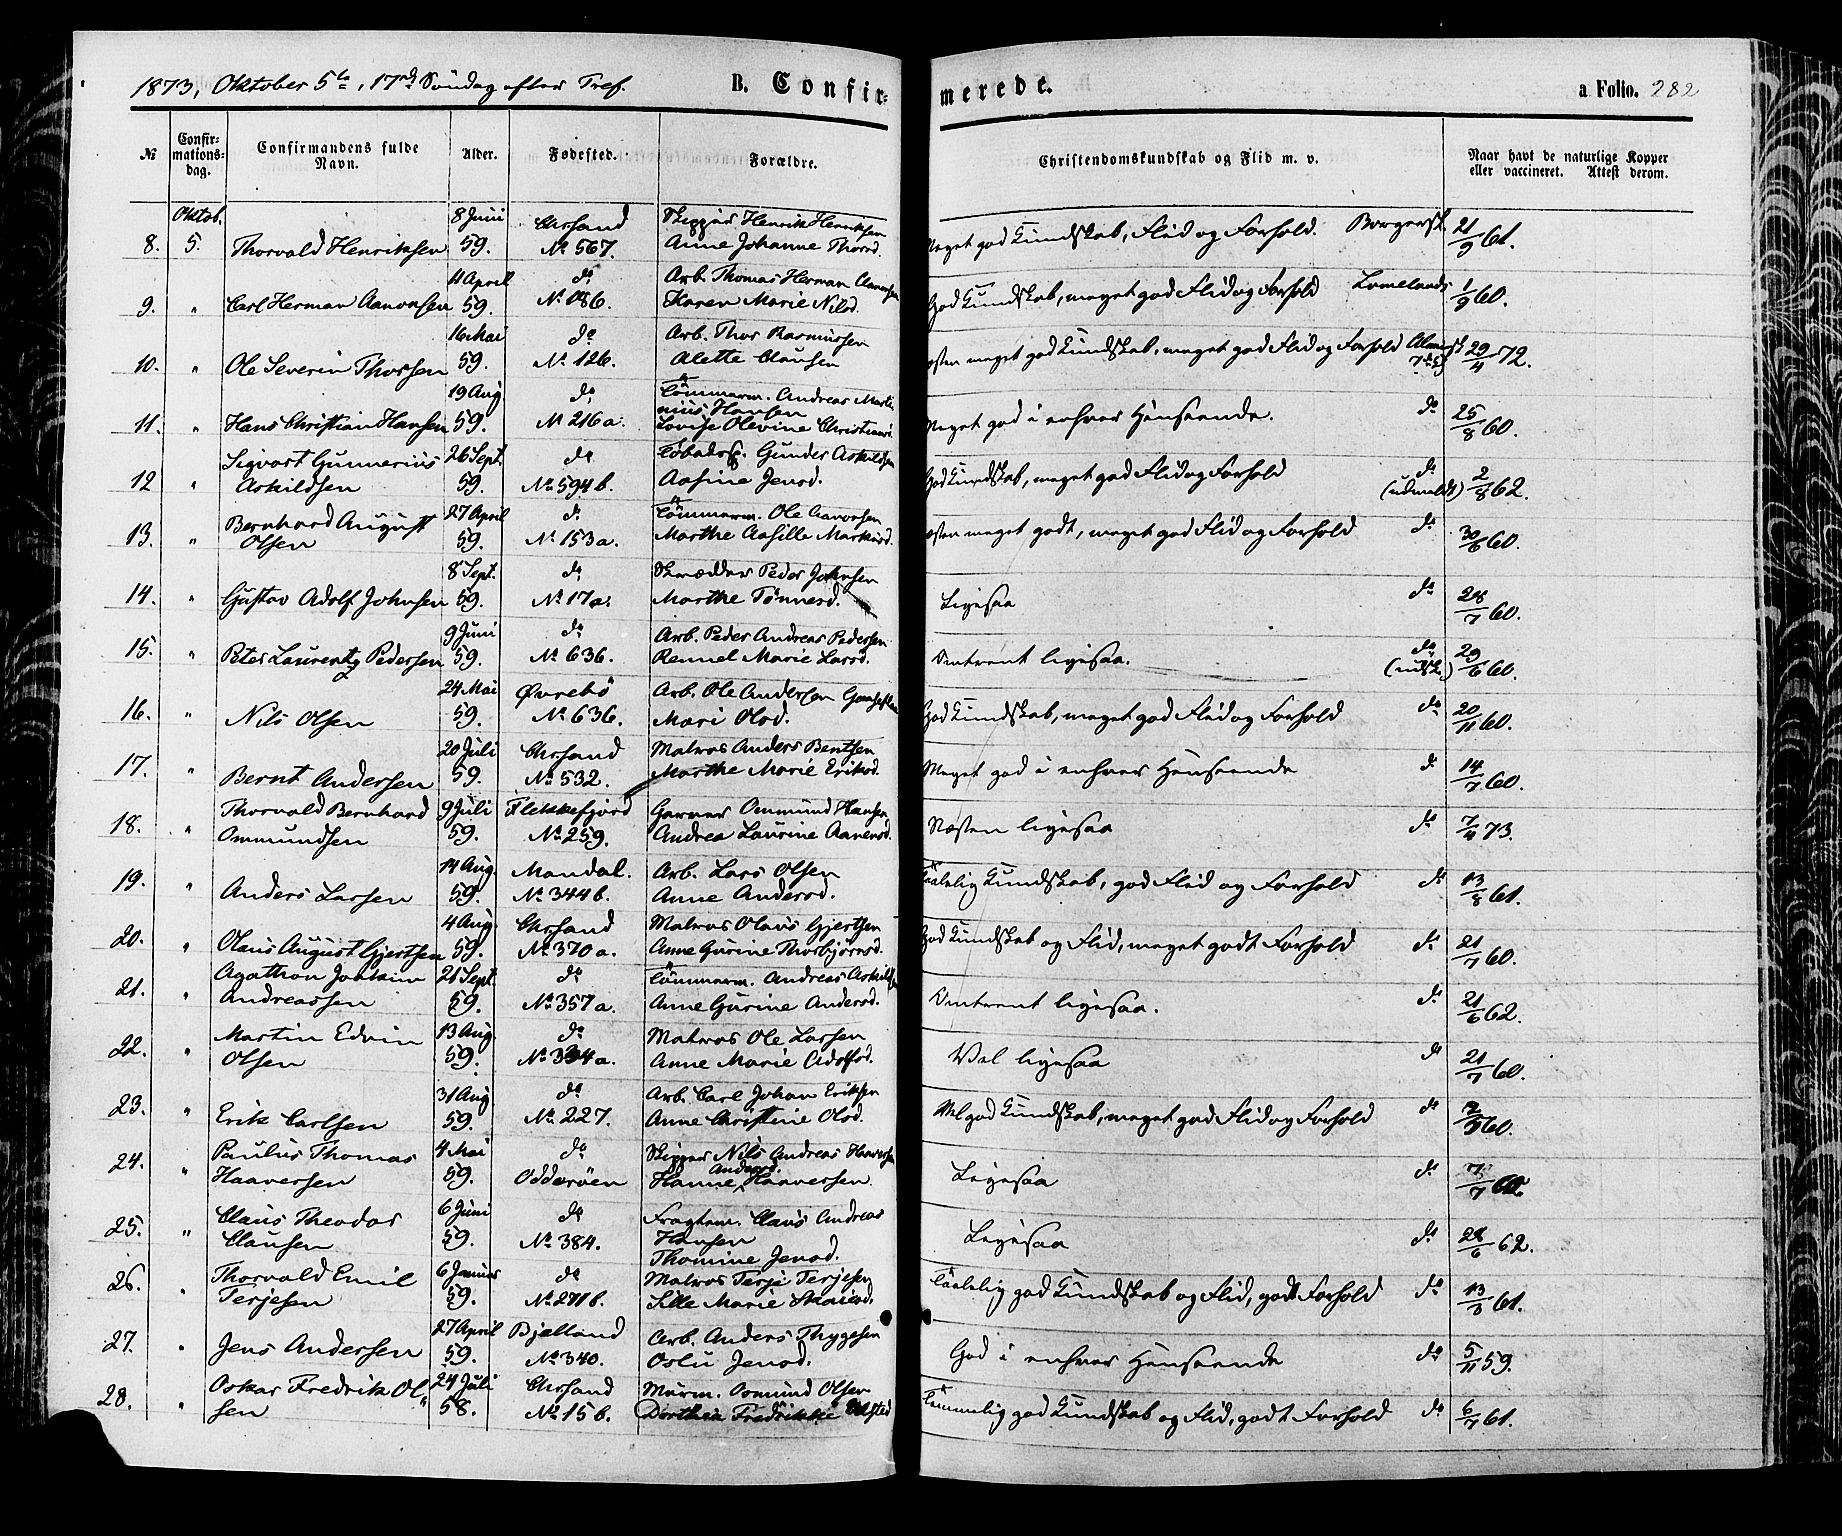 1873, Oktober 5te, 17nd Søndag efter Tref. B. Confirmerede. a Folio. 282
№ Confirmationsdag. Confirmandens fulde Navn. Alder. Fødested. Forældre. Christendomskundskab og Flid m. v. Naar havt de naturlige Kopper eller vaccineret. Attest derom.
Oktob. 8 Juni Chrsand Skipper Henrik Henriksen
8. 5. Thorvald Henriksen 59. № 567. Anne Johanne Thorsd. Meget god Kundskab, Flid og Forhold. Borgersk. 21/9 61.
11 April do Arb. Thomas Herman Aanonsen
9. " Carl Herman Aanonsen 59. Karen Marie Nilsd. God Kundskab, meget god Flid og Forhold 1/9 60.
16 Mai do Arb. Thor Rasmussen
10. " Ole Severin Thorsen 59. № 126. Alette Clausen Næsten meget god Kundskab, meget god Flid og Forhold Almuesk. 29/4 72.
19 Aug do Tömmerm. Andreas Martinius Hansen
11. " Hans Christian Hansen 59. № 216a. Lovise Olevine Christiansd. Meget god i enhver Henseende. do 25/8 60.
Sigvart Gunnerius 26 Sept. do Gunder Askildsen
12 " Askildsen 59. № 594b. Aasine Jensd. God Kundskab, meget god Flid og Forhold do (udmeldt) 2/8 62.
Bernhard August 27 April do Tömmerm. Ole Aanonsen
13. " Olsen 59. № 153a. Marthe Aasille Markusd. Næsten meget godt, meget god Flid og Forhold do 30/6 60.
8 Sept. do Skrædder Peder Johnsen
14. " Gustav Adolf Johnsen 59. № 17a. Marthe Tønnesd. Ligesaa do 28/7 60.
9 Juni do Arb. Peder Andreas Pedersen
15. " Peter Laurentz Pedersen 59. № 636. Rennel Marie Larsd. Omtrent ligesaa. do (udsk.) 29/6 60.
24 Mai Øvrebö Arb. Ole Andersen
16. " Nils Olsen 59. № 636. Mari Olsd. God Kundskab, meget god Flid og Forhold do 20/11 60.
20 Juli Chrsand Matros Anders Bentsen
17. " Bernt Andersen 59. № 532. Marthe Marie Eriksd. Meget god i enhver Henseende do 14/7 60.
Thorvald Bernhard 9 Juli Flekkefjord Garver Ommund Hansen
18. " Ommundsen 59. № 259. Andrea Laurine Aanensd. Næsten ligesaa do 7/4 73.
14 Aug. Mandal. Arb. Lars Olsen
19. " Anders Larsen 59. № 344b. Anne Andersd. Taalelig Kundskab, god Flid og Forhold do 13/8 61.
4 Aug. Chrsand Matros Olaus Gjertsen
20. " Olaus August Gjertsen 59. № 370a. Anne Gurine Thorbjörnsd. God Kundskab og Flid, meget godt Forhold do 21/7 60.
Agathon Joakim 21 Sept. do Tömmerm. Andreas Askildsen
21. " Andreassen 59. № 357a. Anne Gurine Andersd. Omtrent ligesaa. do 21/6 62.
Martin Edvin 13 Aug do Matros Ole Larsen
22. " Olsen 59. № 334a. Anne Marie Adolfsd. Vel ligesaa do 21/7 60.
31 Aug do Arb. Carl Johan Eriksen
23. " Erik Carlsen 59. № 227. Anne Christine Olsd. Vel god Kundskab, meget god Flid og Forhold do 60.
Paulus Thomas 4 Mai do Skipper Nils Andreas Haaversen
24. " Haaversen 59. Odderöen Hanne Andersd. Haaversen Ligesaa do 7/7
Claus Theodor 6 Juni do Fragtem. Claus Andreas Hansen
25. " Clausen 59. № 384. Thomine Jensd. Ligesaa do 28/6 62.
Thorvald Emil 6 Januar do Matros Terje Terjesen
26. " Terjesen 59. № 271b. Sille Marie Taalelig god Kundskab og Flid, godt Forhold do 13/8 61.
27 April Bjelland Arb. Anders Thygesen
27. " Jens Andersen 59. № 340. Oslu Jensd. God i enhver Henseende do 5/11 59.
Oskar Fredrik Ol- 24 Juli Chrsand Murm. Osmund Olsen
28. " sen 58. № 15b. Dorthea Fredrikke Temmelig god Kundskab og Flid, godt Forhold do 6/7 61.